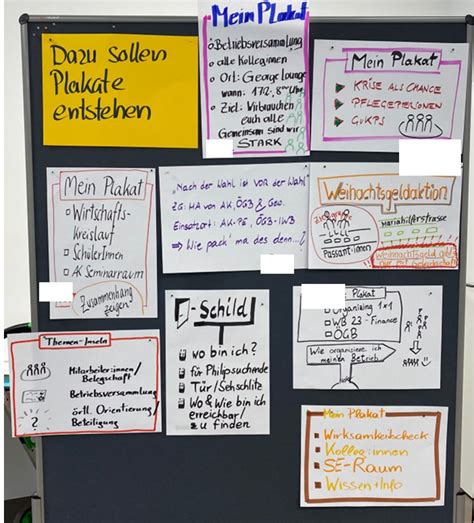 Dazu sollen
Plakate
entstehen
Mein Plakat
Betriebsversammlung
alle Kolleginnen
Ort: George Lounge
wann: 17.2, 8 Uhr
Ziel: Wir brauchen
euch alle
Gemeinsam sind wir
STARK
Mein Plakat
KRISE ALS CHANCE
PFLEGEPERSONEN
GuKPS
Mein Plakat
Wirtschafts-
kreislauf
SchülerInnen
AK Seminarraum
Zusammenhang
zeigen
"Nach der Wahl ist vor der Wahl
ZG: MA von AK, ÖGB & Gew.
Einsatzort: AK-PS, ÖGB-
⇒ Wie pack' ma des denn...?
Weihnachtsgeldaktion
Mariahilferstrasse
Passant·innen
Weihnachtsgeld
Themen-Inseln
Mitarbeiter:innen/
Belegschaft
Betriebsversammlung
örtl. Orientierung/
Beteiligung
?
-Schild
wo bin ich?
für Philipsuchende
Tür/Sehschlitz
Wo & Wie bin ich
erreichbar/
zu finden
Plakat
Organizing 1x1
WB 23 - Finance
ÖGB
Wie organisiere ich
meinen Betrieb
Mein Plakat
Wirksamkeitscheck
Kolleg:innen
SE-Raum
Wissen+Info